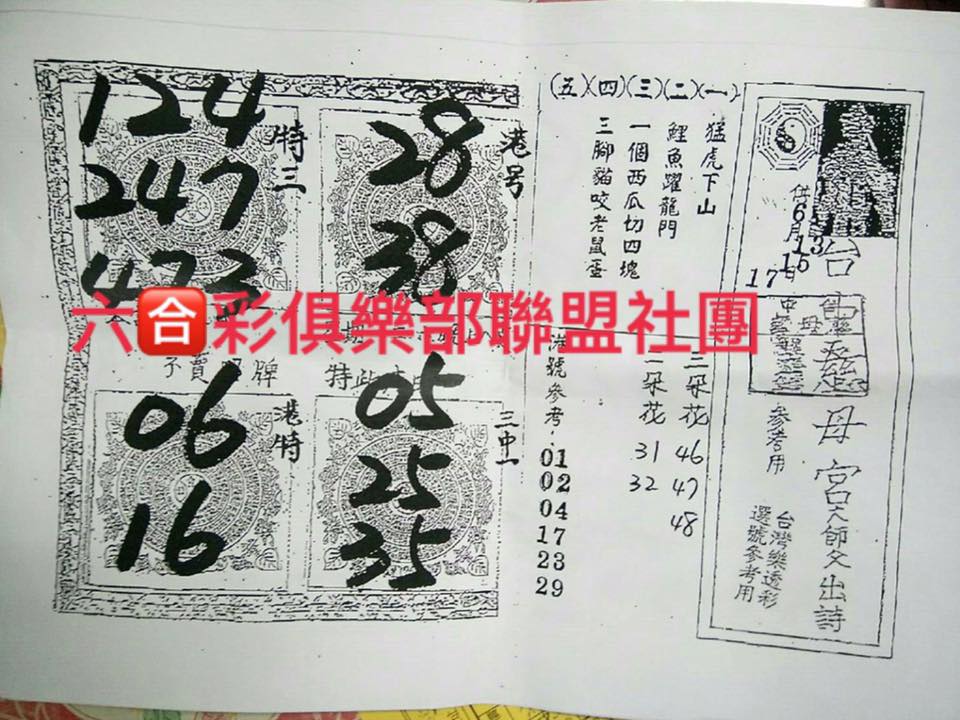 供6月13
15
17日
台
母宮大師父出詩
參考用
台灣樂透彩
選號參考用
(一)(二)(三)(四)(五)
猛虎下山
鯉魚躍龍門
一個西瓜切四塊
三腳貓咬老鼠蛋
三朵花 46 47 48
二朵花 31 32
港號參考:
01
02
04
17
23
29
港号
28
38
特三
124
247
473
六合彩俱樂部聯盟社團
三中一
05
25
35
港特
06
16